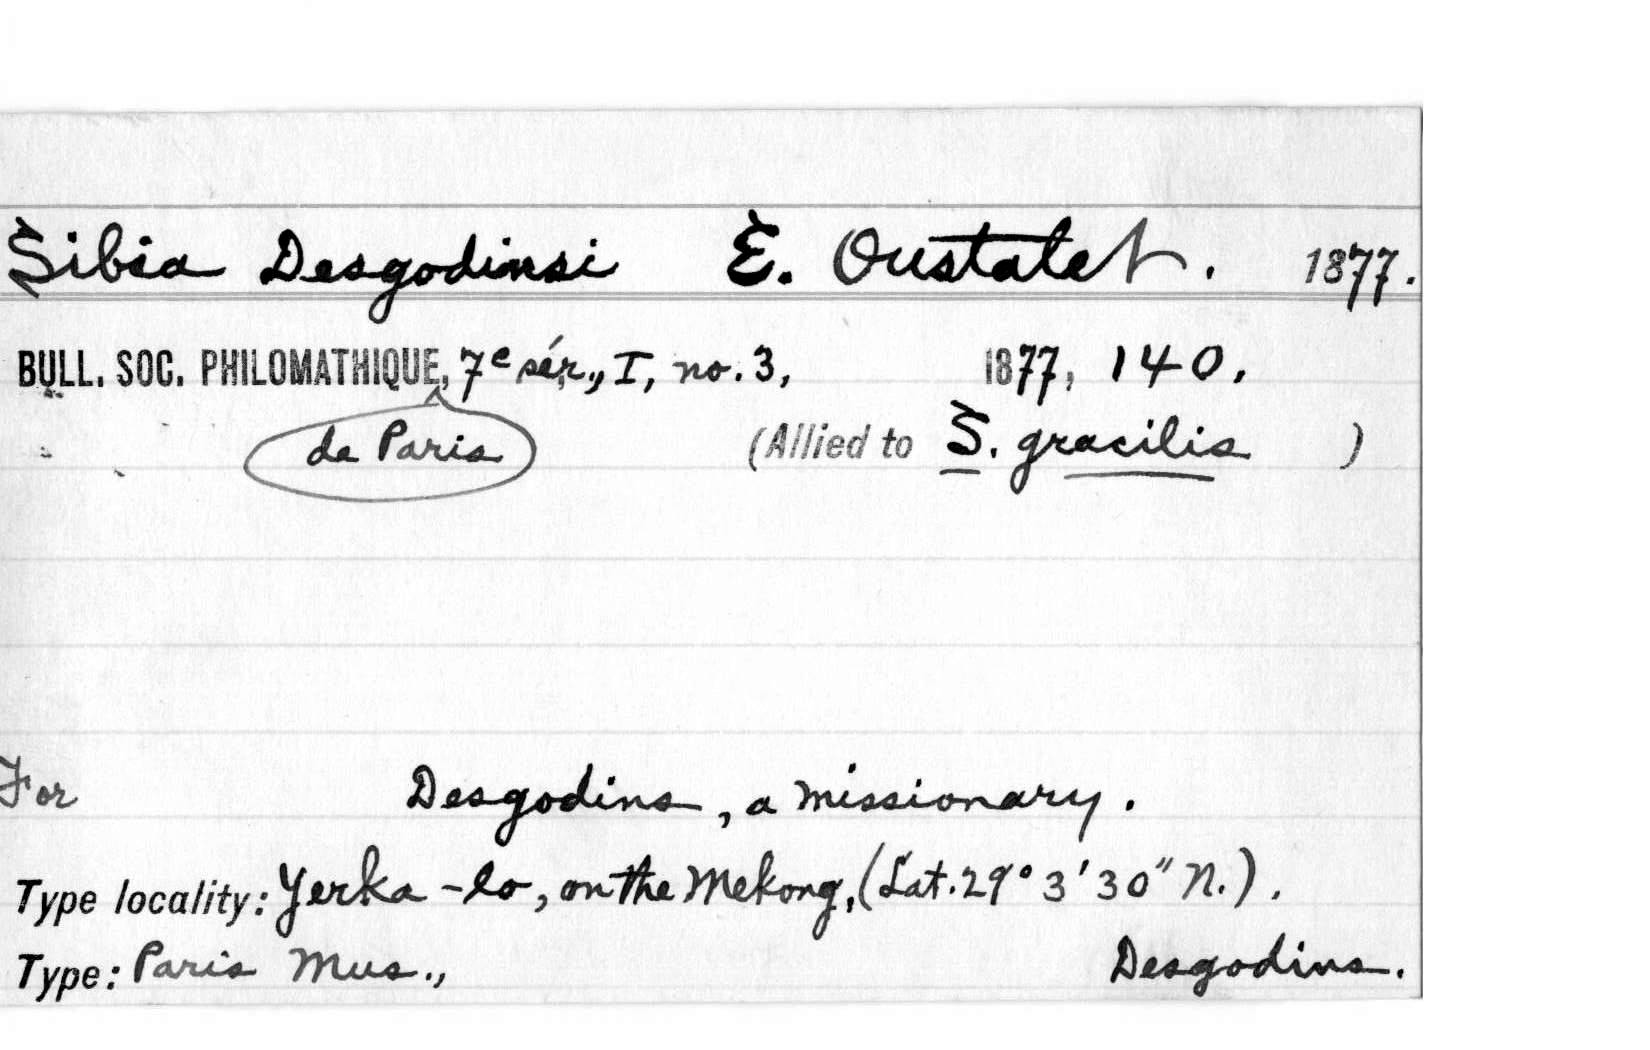 Sibia Desgodinsi E. Oustalet. 1877.
BULL. SOC. PHILOMATHIQUE, 7e sér., I, no. 3, 1877, 140.
de Paris (Allied to S. gracilis )
For Desgodins, a missionary.
Type locality: Yerka-lo, on the Mekong, (Lat. 29° 3' 30" N.).
Type: Paris Mus., Desgodins.